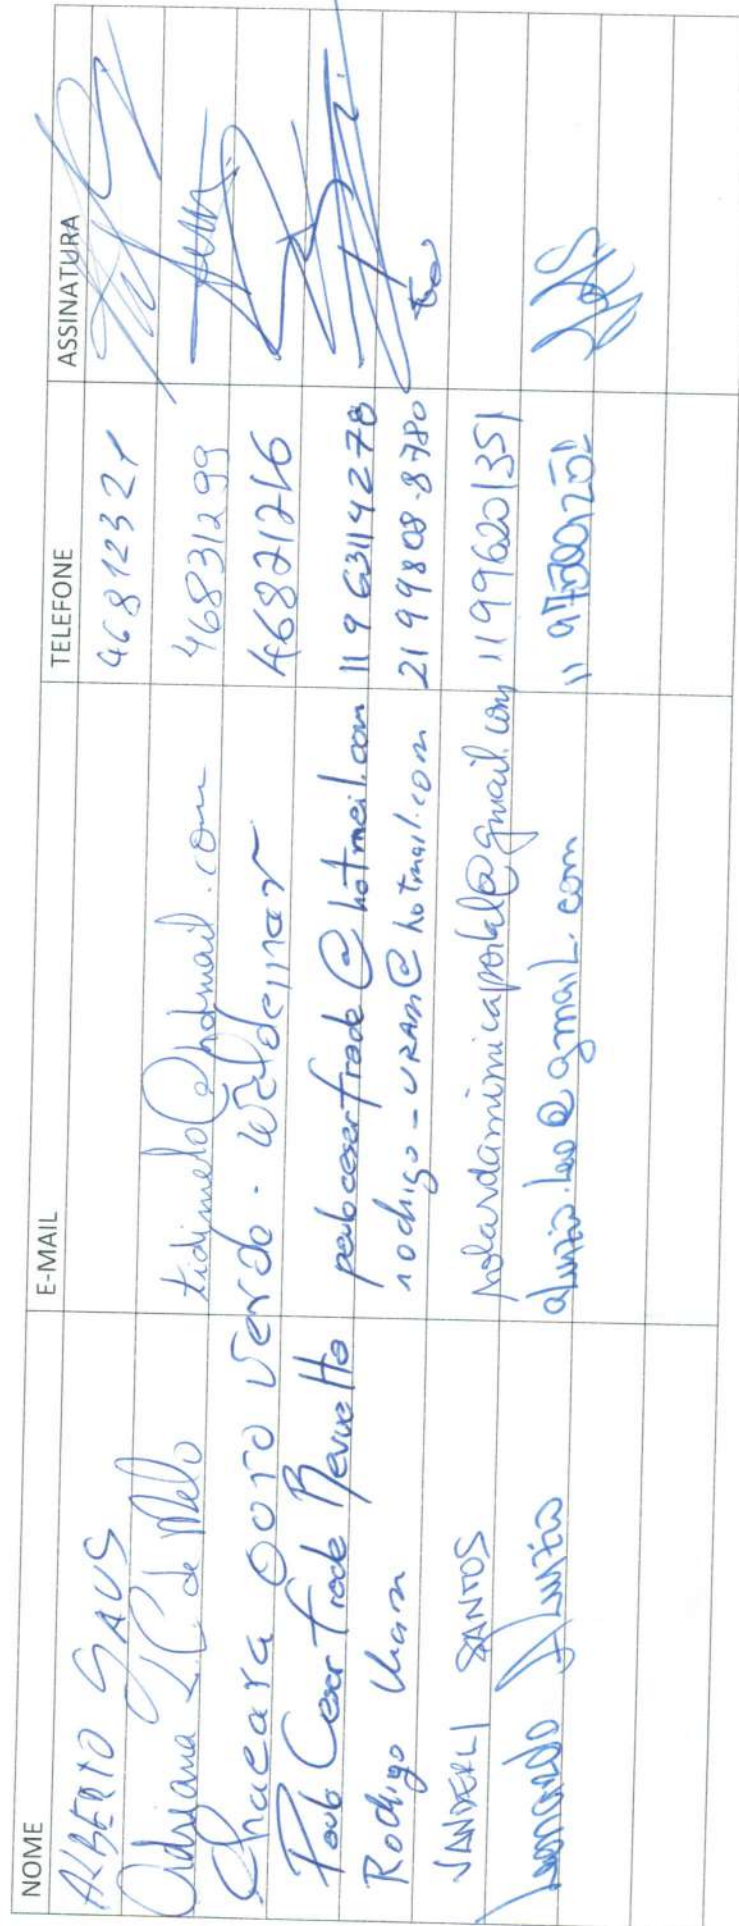 NOME E-MAIL TELEFONE ASSINATURA
ALBERTO 46812321
Adriana L C de Melo tidimelo@hotmail.com 46831299
Chacara Ooro Verde - Waldemar 46821216
Paulo Cesar Frade Revuelta paulocesarfrade@hotmail.com 11963114278
Rodrigo Uram rodrigo-URAM@hotmail.com 2199808-8780
VANDERLI SANTOS @gmail.com 11996201351
Leonardo Aluizio aluizio.leo@gmail.com 11